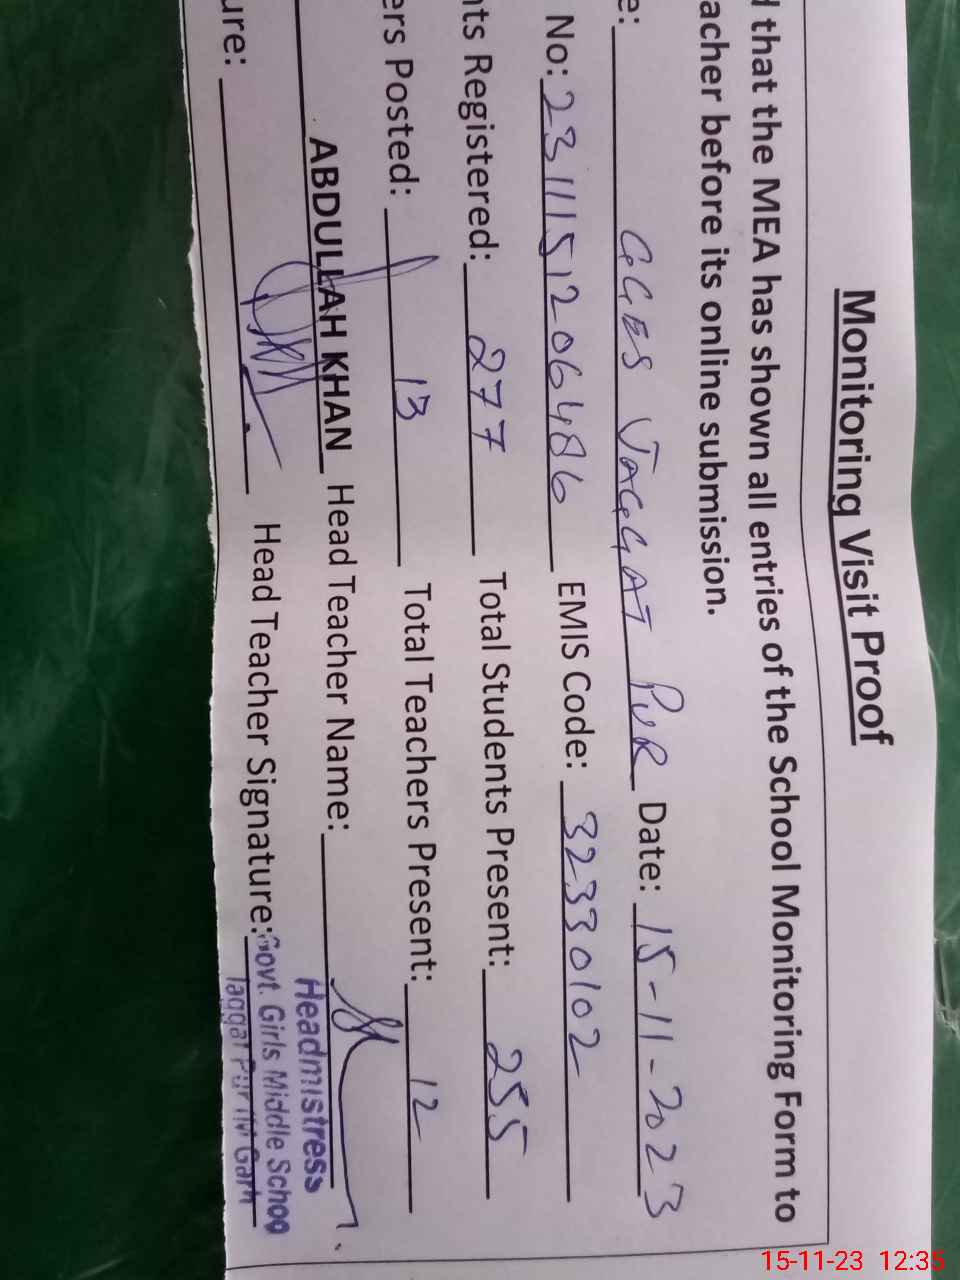 Monitoring Visit Proof
d that the MEA has shown all entries of the School Monitoring Form to
acher before its online submission.
e: GGES JAGGAT PUR Date: 15-11-2023
No: 2311151206486 EMIS Code: 32330102
nts Registered: 277 Total Students Present: 255
ers Posted: 13 Total Teachers Present: 12
ABDULLAH KHAN Head Teacher Name:
ure: Head Teacher Signature:
Headmistress
Govt. Girls Middle Schoo
Jaggat Pur (M Garh
15-11-23 12:35